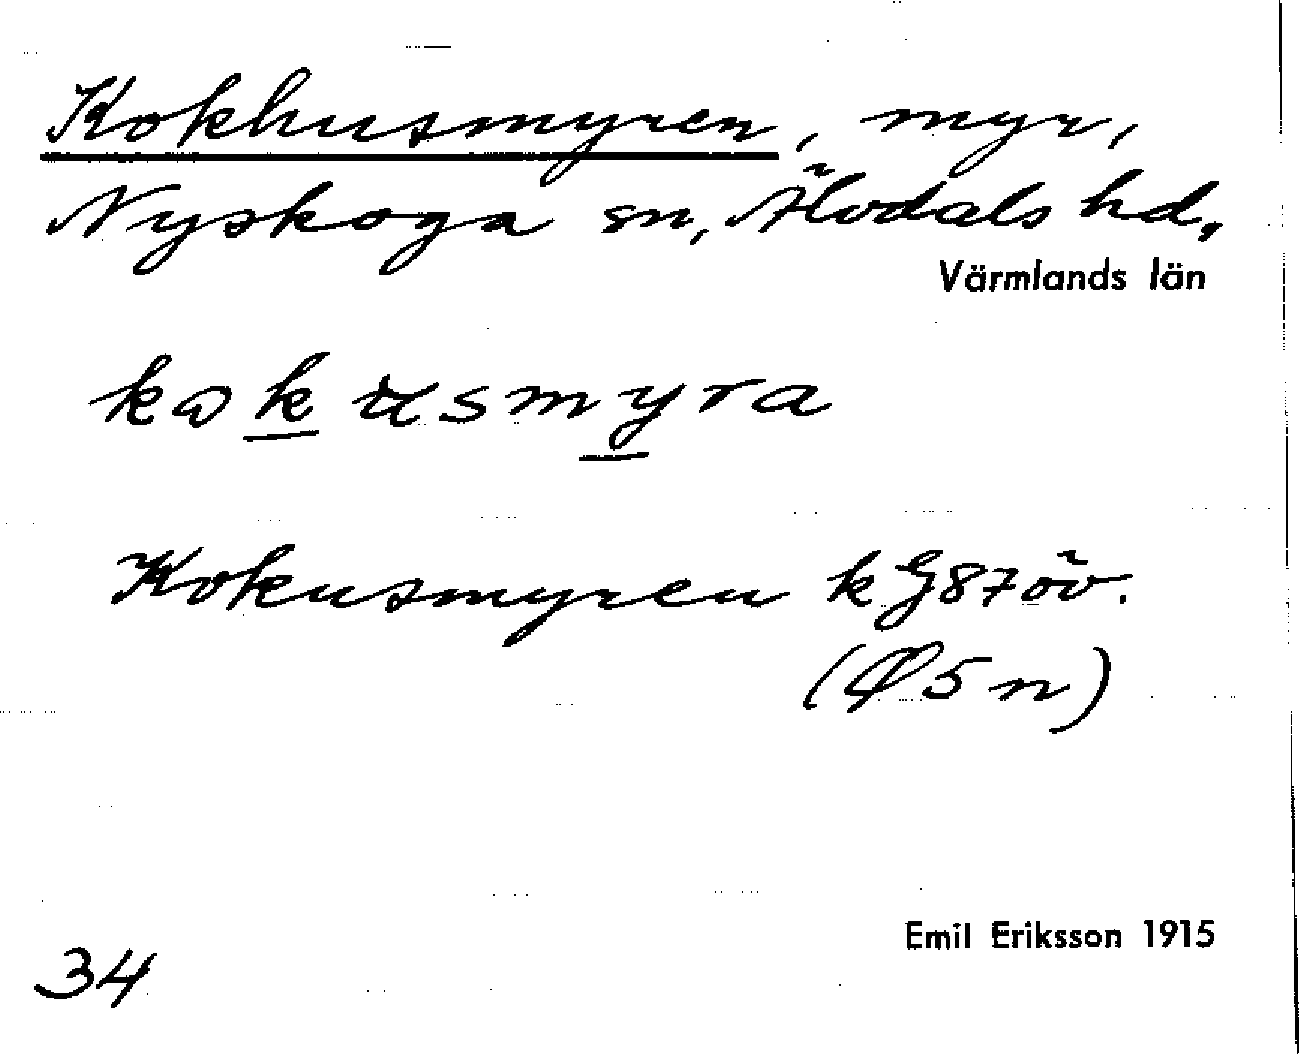 Kokhusmyren, myr,
Nyskoga sn, Älvdals hd,
Värmlands län
kokusmyra
Kokusmyren k G87öv.
(Ø5n)
Emil Eriksson 1915
34